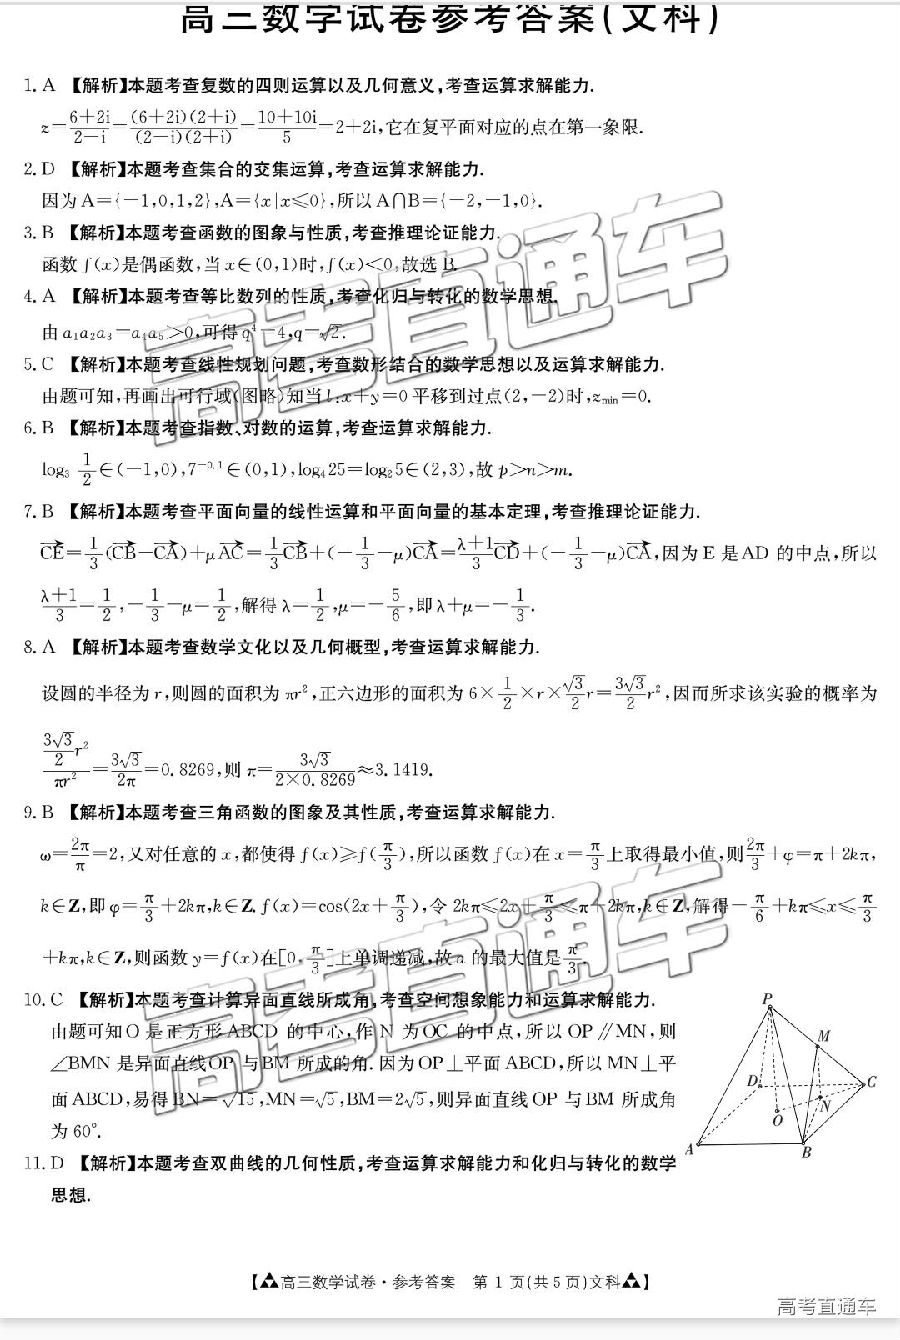 高三数学试卷参考答案(文科)
1. A 【解析】本题考查复数的四则运算以及几何意义,考查运算求解能力.
z=\frac{6+2i}{2-i}=\frac{(6+2i)(2+i)}{(2-i)(2+i)}=\frac{10+10i}{5}=2+2i,它在复平面对应的点在第一象限.
2. D 【解析】本题考查集合的交集运算,考查运算求解能力.
因为A={-1,0,1,2},A={x|x≤0},所以A∩B={-2,-1,0}.
3. B 【解析】本题考查函数的图象与性质,考查推理论证能力.
函数f(x)是偶函数,当x∈(0,1)时,f(x)<0,故选B.
4. A 【解析】本题考查等比数列的性质,考查化归与转化的数学思想.
由a₁a₂a₃=a₄a₅>0,可得q⁴=4,q=√2.
5. C 【解析】本题考查线性规划问题,考查数形结合的数学思想以及运算求解能力.
由题可知,再画出可行域(图略)知当l:x+y=0平移到过点(2,-2)时,z_{min}=0.
6. B 【解析】本题考查指数、对数的运算,考查运算求解能力.
log₃\frac{1}{2}∈(-1,0),7^{-0.1}∈(0,1),log₄25=log₂5∈(2,3),故p>n>m.
7. B 【解析】本题考查平面向量的线性运算和平面向量的基本定理,考查推理论证能力.
\vec{CE}=\frac{1}{3}(\vec{CB}-\vec{CA})+μ\vec{AC}=\frac{1}{3}\vec{CB}+(-\frac{1}{3}-μ)\vec{CA}=\frac{λ+1}{3}\vec{CD}+(-\frac{1}{3}-μ)\vec{CA},因为E是AD的中点,所以
\frac{λ+1}{3}=\frac{1}{2},-\frac{1}{3}-μ=\frac{1}{2},解得λ=\frac{1}{2},μ=-\frac{5}{6},即λ+μ=-\frac{1}{3}.
8. A 【解析】本题考查数学文化以及几何概型,考查运算求解能力.
设圆的半径为r,则圆的面积为πr²,正六边形的面积为6×\frac{1}{2}×r×\frac{√3}{2}r=\frac{3√3}{2}r²,因而所求该实验的概率为
\frac{\frac{3√3}{2}r²}{πr²}=\frac{3√3}{2π}=0.8269,则π=\frac{3√3}{2×0.8269}≈3.1419.
9. B 【解析】本题考查三角函数的图象及其性质,考查运算求解能力.
ω=\frac{2π}{π}=2,又对任意的x,都使得f(x)≥f(\frac{π}{3}),所以函数f(x)在x=\frac{π}{3}上取得最小值,则\frac{2π}{3}+φ=π+2kπ,
k∈Z,即φ=\frac{π}{3}+2kπ,k∈Z,f(x)=cos(2x+\frac{π}{3}),令2kπ≤2x+\frac{π}{3}≤π+2kπ,k∈Z,解得-\frac{π}{6}+kπ≤x≤\frac{π}{3}
+kπ,k∈Z,则函数y=f(x)在[0,\frac{π}{3}]上单调递减,故a的最大值是\frac{π}{3}.
10. C 【解析】本题考查计算异面直线所成角,考查空间想象能力和运算求解能力.
由题可知O是正方形ABCD的中心,作N为OC的中点,所以OP∥MN,则
∠BMN是异面直线OP与BM所成的角.因为OP⊥平面ABCD,所以MN⊥平
面ABCD,易得BN=√15,MN=√5,BM=2√5,则异面直线OP与BM所成角
为60°.
P
M
D
C
N
O
A
B
11. D 【解析】本题考查双曲线的几何性质,考查运算求解能力和化归与转化的数学
思想.
【高三数学试卷·参考答案 第1页(共5页)文科】
高考直通车
高考直通车
高考直通车